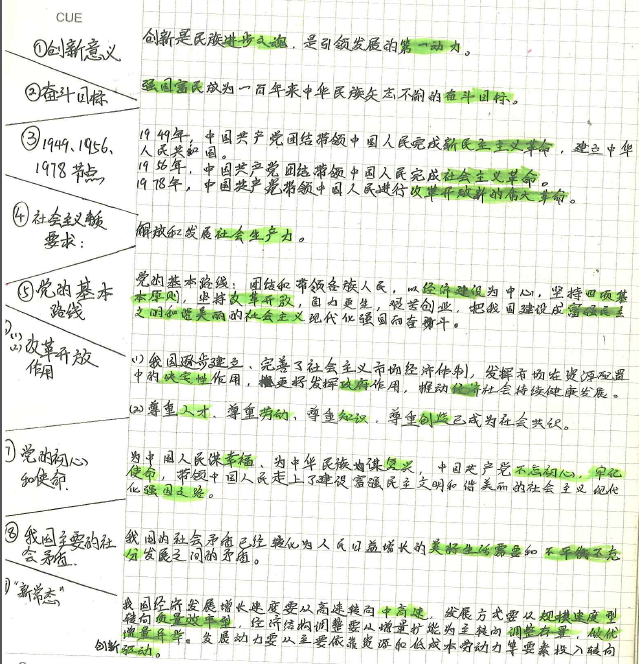 CUE
①创新意义
创新是民族进步之魂，是引领发展的第一动力。
②奋斗目标
强国富民成为一百年来中华民族矢志不渝的奋斗目标。
③1949、1956、
1978节点
1949年，中国共产党团结带领中国人民完成新民主主义革命，建立中华
人民共和国。
1956年，中国共产党团结带领中国人民完成社会主义革命。
1978年，中国共产党带领中国人民进行改革开放新的伟大革命。
④社会主义本质
要求：
解放和发展社会生产力。
⑤党的基本
路线
党的基本路线：团结和带领各族人民，以经济建设为中心，坚持四项基
本原则，坚持改革开放，自力更生，艰苦创业，把我国建设成富强民主
文明和谐美丽的社会主义现代化强国而奋斗。
(1)
(2)改革开放
作用
(1)我国逐步建立、完善了社会主义市场经济体制，发挥市场在资源配置
中的决定性作用，更好发挥政府作用，推动经济社会持续健康发展。
(2)尊重人才、尊重劳动、尊重知识、尊重创造已成为社会共识。
党的初心
和使命
为中国人民谋幸福、为中华民族谋复兴，中国共产党不忘初心，牢记
使命，带领中国人民走上了建设富强民主文明和谐美丽的社会主义现代
化强国之路。
⑧我国主要的社
会矛盾
我国的社会矛盾已经转化为人民日益增长的美好生活需要和不平衡不充
分发展之间的矛盾。
"新常态"
我国经济发展增长速度要从高速转向中高速，发展方式要从规模速度型
转向质量效率型，经济结构调整要从增量扩能为主转向调整存量、做优
增量并举。发展动力要从主要依靠资源和低成本劳动力等要素投入转向
创新驱动。